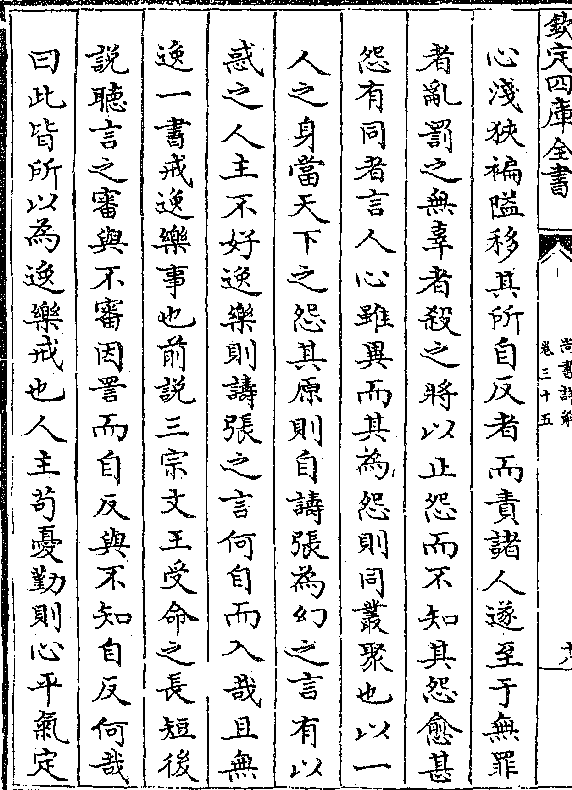 欽定四庫全書
尚書詳解
卷三十五
十八
心淺狹褊隘移其所自反者而責諸人遂至于無罪
者亂罰之無辜者殺之將以止怨而不知其怨愈甚
怨有同者言人心雖異而其為怨則同叢聚也以一
人之身當天下之怨其原則自譸張為幻之言有以
惑之人主不好逸樂則譸張之言何自而入哉且無
逸一書戒逸樂事也前説三宗文王受命之長短後
説聽言之審與不審因詈而自反與不知自反何哉
曰此皆所以為逸樂戒也人主苟憂勤則心平氣定